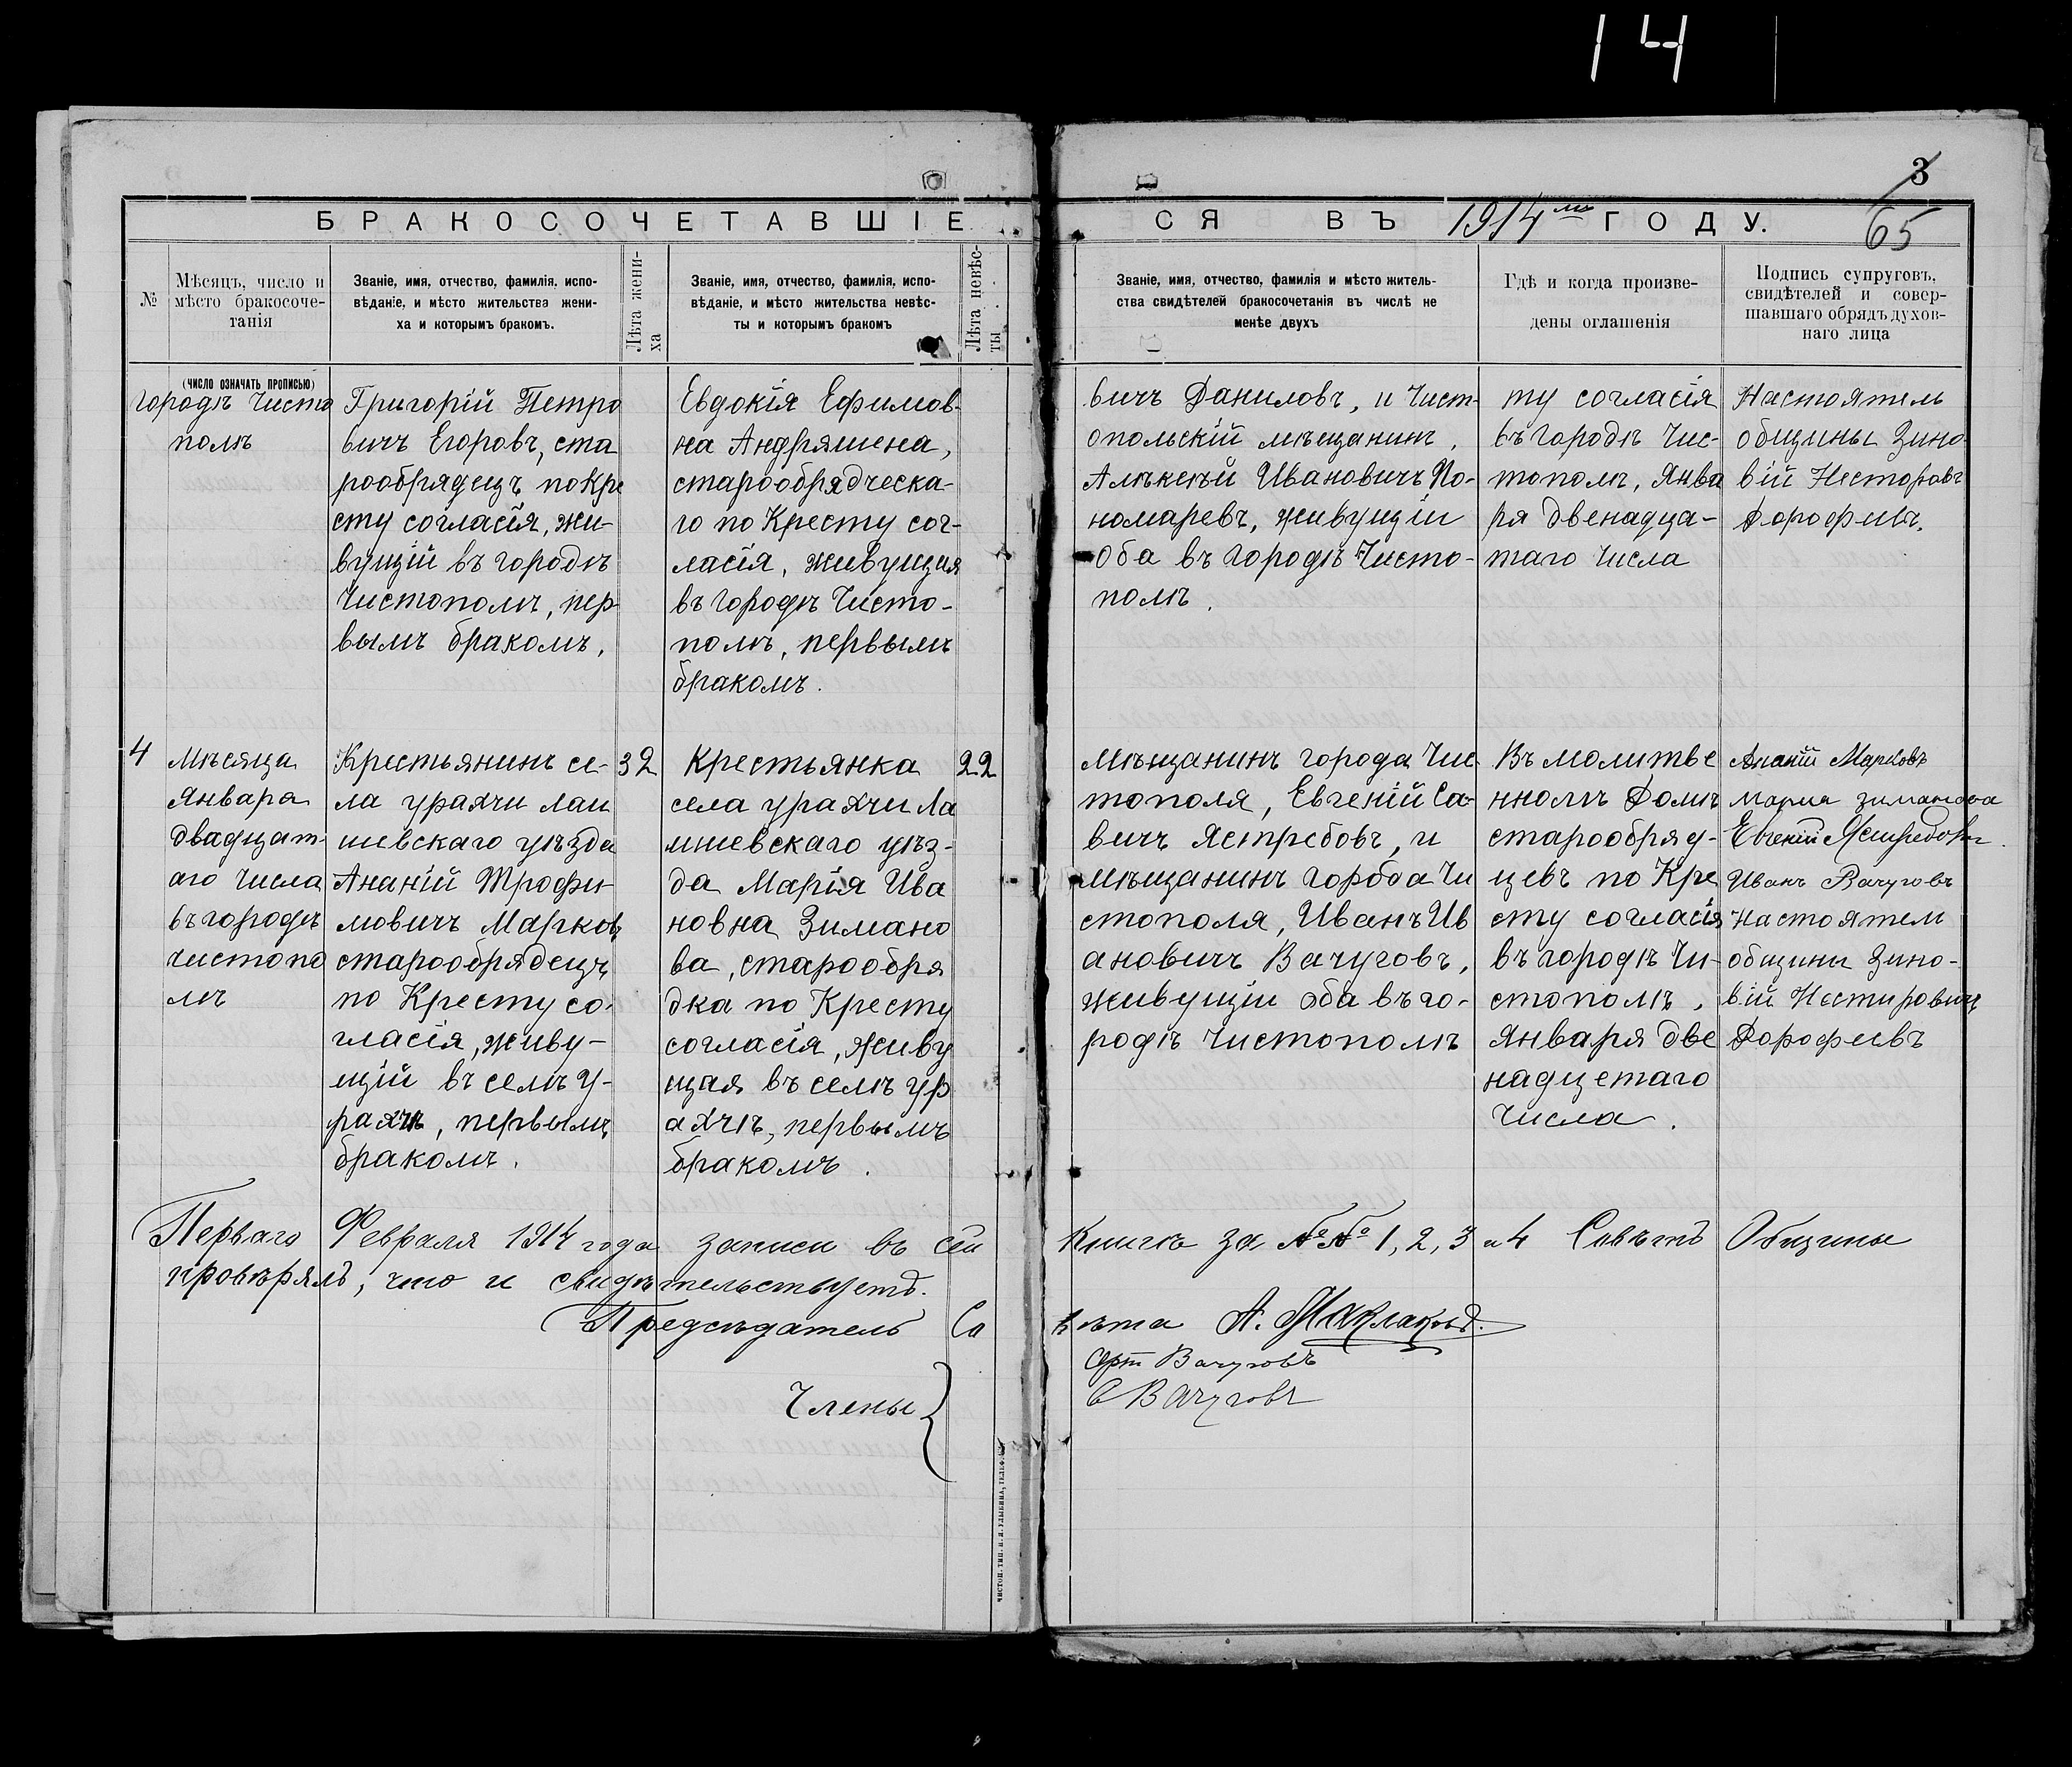 14
3
65
БРАКОСОЧЕТАВШІЕ
СЯ ВЪ 1914мъ ГОДУ.
№
Мѣсяцъ, число и
мѣсто бракосоче-
танія
(число означать прописью)
Званіе, имя, отчество, фамилія, испо-
вѣданіе, и мѣсто жительства жени-
ха и которымъ бракомъ.
Лѣта жени-
ха
Званіе, имя, отчество, фамилія, испо-
вѣданіе, и мѣсто жительства невѣс-
ты и которымъ бракомъ
Лѣта невѣс-
ты
Званіе, имя, отчество, фамилія и мѣсто житель-
ства свидѣтелей бракосочетанія въ числѣ не
менѣе двухъ
Гдѣ и когда произве-
дены оглашенія
Подпись супруговъ,
свидѣтелей и совер-
шавшаго обрядъ духов-
наго лица
городѣ Чисто
полѣ
Григорій Петро
вичъ Егоровъ, ста
рообрядецъ по Кре
сту согласія, жи-
вущій въ городѣ
Чистополѣ, пер-
вымъ бракомъ,
Евдокія Ефимов-
на Андряшена,
старообрядческа-
го по Кресту сог-
ласія, живущая
въ городѣ Чисто-
полѣ, первымъ
бракомъ.
вичъ Даниловъ, и Чист-
опольскій мѣщанинъ,
Алѣксѣй Ивановичъ По-
номаревъ, живущіи
оба въ городѣ Чисто-
полѣ.
ту согласія
въ городѣ Чис-
тополѣ, Янва
ря двенадца-
таго числа
Настоятель
общины Зино-
вій Несторовъ
Дорофѣвъ.
4
Мѣсяца
Января
двадцат-
аго числа
въ городѣ
чистопо
лѣ
Крестьянинъ се-
ла урахчи лаи
шевскаго уѣзда
Ананій Трофи-
мовичъ Марковъ
старообрядецъ
по Кресту со-
гласія, живу-
щій въ селѣ У-
рахчѣ, первымъ
бракомъ.
32
Крестьянка
села урахчи Ла
ишевскаго уѣз-
да Марія Ива
новна Зимано
ва, старообря
дка по Кресту
согласія, живу
щая въ селѣ ур
ахчѣ, первымъ
бракомъ.
22
Мѣщанинъ города Чис
тополя, Евгеній Са-
вичъ Ястребовъ, и
Мѣщанинъ города Чи
стополя, Иванъ Ив
ановичъ Вачуговъ,
живущіи оба въ го-
родѣ Чистополѣ
Въ молитве
нномъ Домѣ
старообряд-
цевъ по Кре
сту согласія
въ городѣ Чи-
стополѣ,
Января две
надцетаго
числа.
Ананій Марковъ
Мария зиманова
Евгеній Ястребовъ.
Иванъ Вачуговъ
Настоятель
общины Зино-
вій Нестировичъ
Дорофеевъ
Перваго Февраля 1914 года записи въ сей Книгѣ за №№ 1, 2, 3 и 4 Совѣтъ Общины
провѣрялъ, что и свидѣтельствуетъ.
Предсѣдатель Совѣта А. Маклаковъ.
Члены
Вачуговъ
С Вачуговъ
Чистоп. тип.